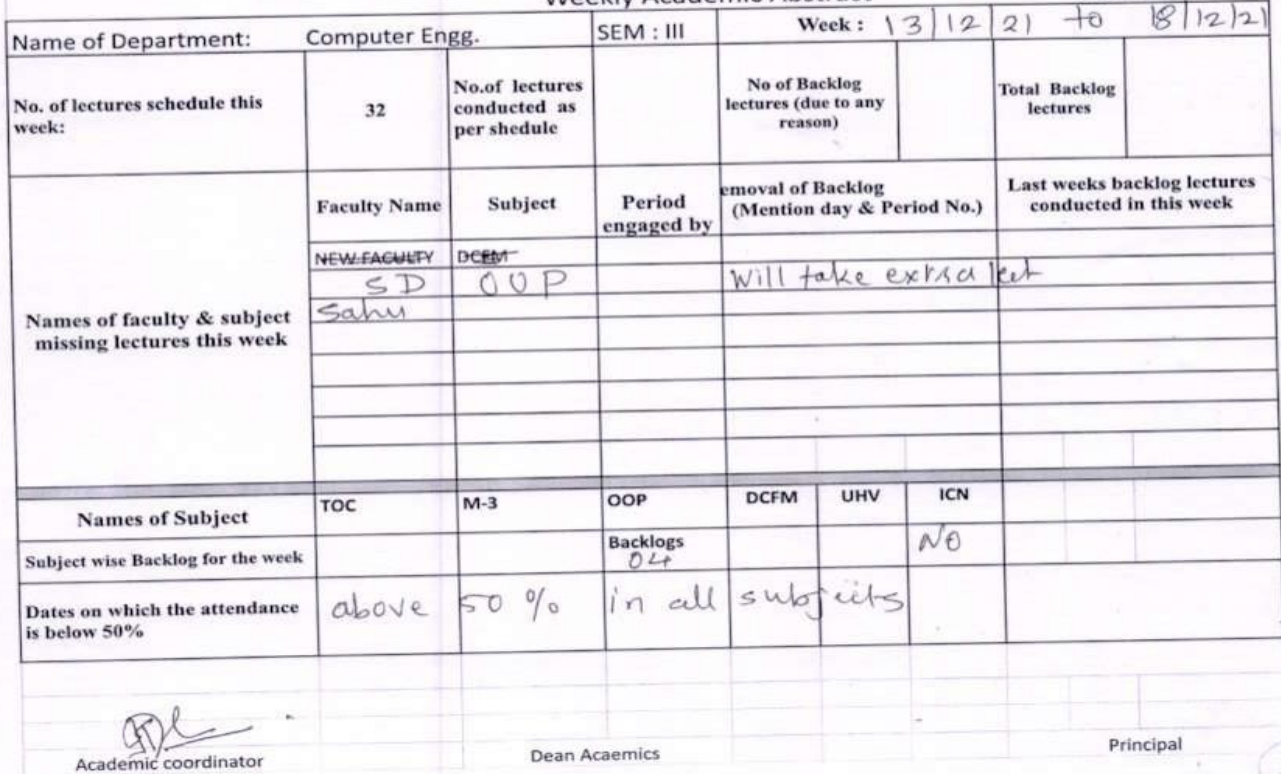 Weekly Academic Abstract
Name of Department: Computer Engg. SEM : III Week : 13/12/21 to 18/12/21
No. of lectures schedule this week: 32 No.of lectures conducted as per shedule No of Backlog lectures (due to any reason) Total Backlog lectures
Names of faculty & subject missing lectures this week
Faculty Name Subject Period engaged by emoval of Backlog (Mention day & Period No.) Last weeks backlog lectures conducted in this week
NEW FACULTY DCFM
SD OOP Will take extra lect
Sahu
Names of Subject TOC M-3 OOP DCFM UHV ICN
Subject wise Backlog for the week Backlogs 04 NO
Dates on which the attendance is below 50% above 50 % in all subjects
Academic coordinator Dean Acaemics Principal